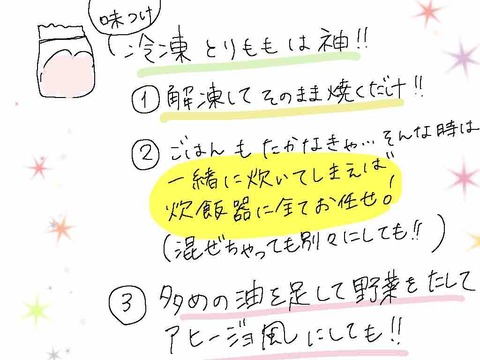 味つけ
冷凍とりももは神!!
① 解凍してそのまま焼くだけ!!
② ごはんもたかなきゃ…そんな時は
一緒に炊いてしまえば
炊飯器に全てお任せ!
(混ぜちゃっても別々にしても!!)
③ 多めの油を足して野菜をたして
アヒージョ風にしても!!